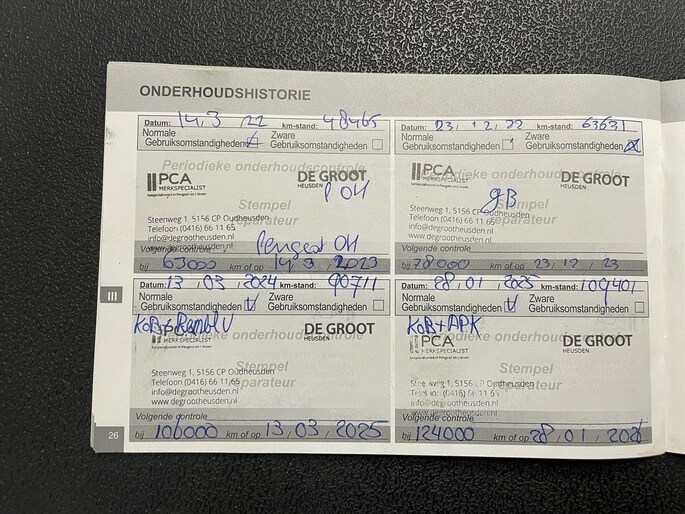 ONDERHOUDSHISTORIE
Datum: 14, 3 , 22 km-stand: 48465
Normale Zware
Gebruiksomstandigheden Gebruiksomstandigheden
Periodieke onderhoudscontrole
PCA DE GROOT
MERKSPECIALIST HEUSDEN
P OH
Stempel
Steenweg 1, 5156 CP Oudheusden
Telefoon (0416) 66 11 65
info@degrootheusden.nl
www.degrootheusden.nl
Peugeot OH
Volgende controle
bij 63000 km of op 14, 3 , 2023
Datum: 23, 12, 22 km-stand: 63631
Normale Zware
Gebruiksomstandigheden Gebruiksomstandigheden
Periodieke onderhoudscontrole
PCA DE GROOT
MERKSPECIALIST HEUSDEN
gB
Stempel
reparateur
Steenweg 1, 5156 CP Oudheusden
Telefoon (0416) 66 11 65
info@degrootheusden.nl
www.degrootheusden.nl
Volgende controle
bij 78000 km of op 23, 12, 23
Datum: 13, 03, 2024 km-stand: 90711
Normale Zware
Gebruiksomstandigheden Gebruiksomstandigheden
Periodieke onderhoudscontrole
PCA DE GROOT
MERKSPECIALIST HEUSDEN
Stempel
reparateur
Steenweg 1, 5156 CP Oudheusden
Telefoon (0416) 66 11 65
info@degrootheusden.nl
www.degrootheusden.nl
Volgende controle
bij 106000 km of op 13, 03, 2025
Datum: 28, 01, 2025 km-stand: 109401
Normale Zware
Gebruiksomstandigheden Gebruiksomstandigheden
KOB+APK
Periodieke onderhoudscontrole
PCA DE GROOT
MERKSPECIALIST HEUSDEN
Stempel
reparateur
Steenweg 1, 5156 CP Oudheusden
Telefoon (0416) 66 11 65
info@degrootheusden.nl
www.degrootheusden.nl
Volgende controle
bij 124000 km of op 28, 01, 2026
III
26